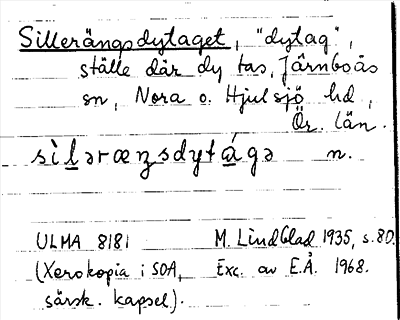 Sillerängsdytaget, "dytag",
ställe där dy tas, Järnboås
sn, Nora o. Hjulsjö hd,
Ör. län.
sìlərœŋsdytágə n.
ULMA 8181 M. Lindblad 1935, s. 80.
(Xerokopia i SOA, Exc. av E.Å. 1968.
särsk. kapsel).